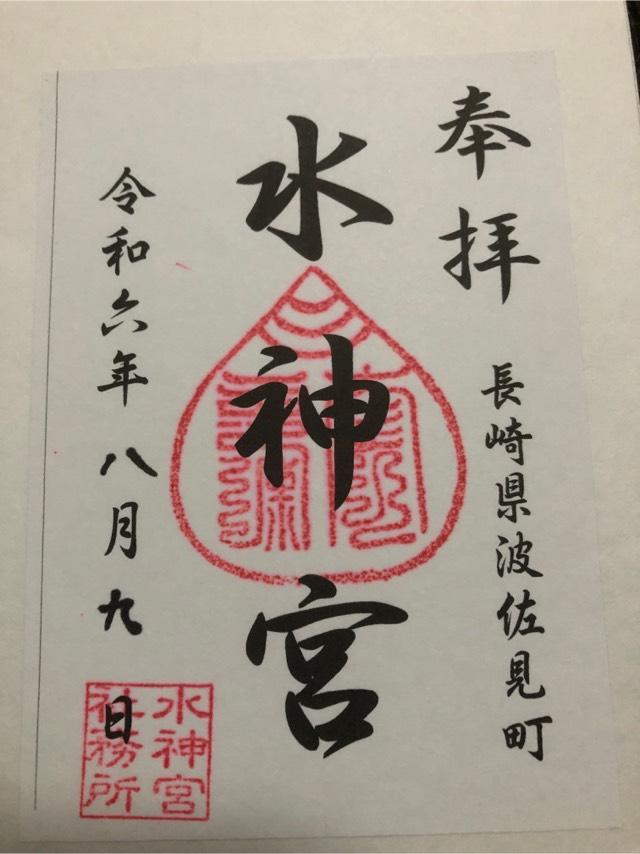 奉拝
長崎県波佐見町
水神宮
令和六年八月九日
水神宮
社務所